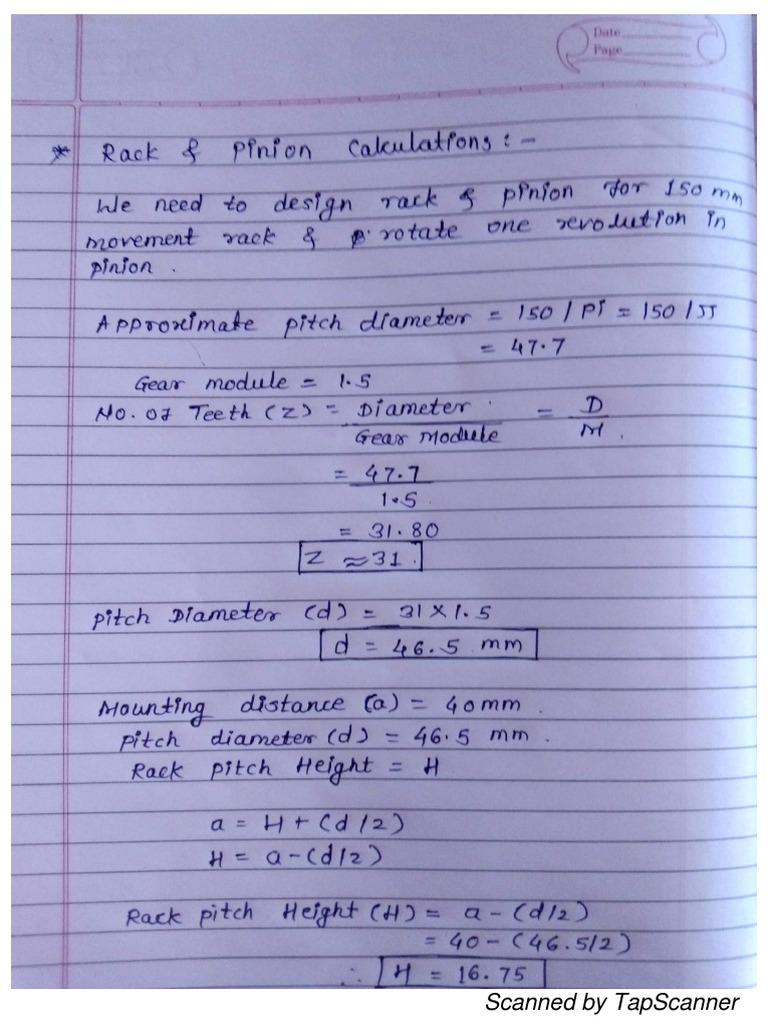 Date
Page
* Rack & Pinion Calculations :-
We need to design rack & pinion for 150 mm
movement rack & rotate one revolution in
pinion .
Approximate pitch diameter = 150 / Pi = 150 / π
= 47.7
Gear module = 1.5
No. of Teeth (z) = Diameter / Gear Module = D / M .
= 47.7 / 1.5
= 31.80
Z ≈ 31 .
Pitch Diameter (d) = 31 x 1.5
d = 46.5 mm
Mounting distance (a) = 40 mm .
Pitch diameter (d) = 46.5 mm .
Rack pitch Height = H
a = H + (d/2)
H = a - (d/2)
Rack pitch Height (H) = a - (d/2)
= 40 - (46.5/2)
∴ H = 16.75
Scanned by TapScanner